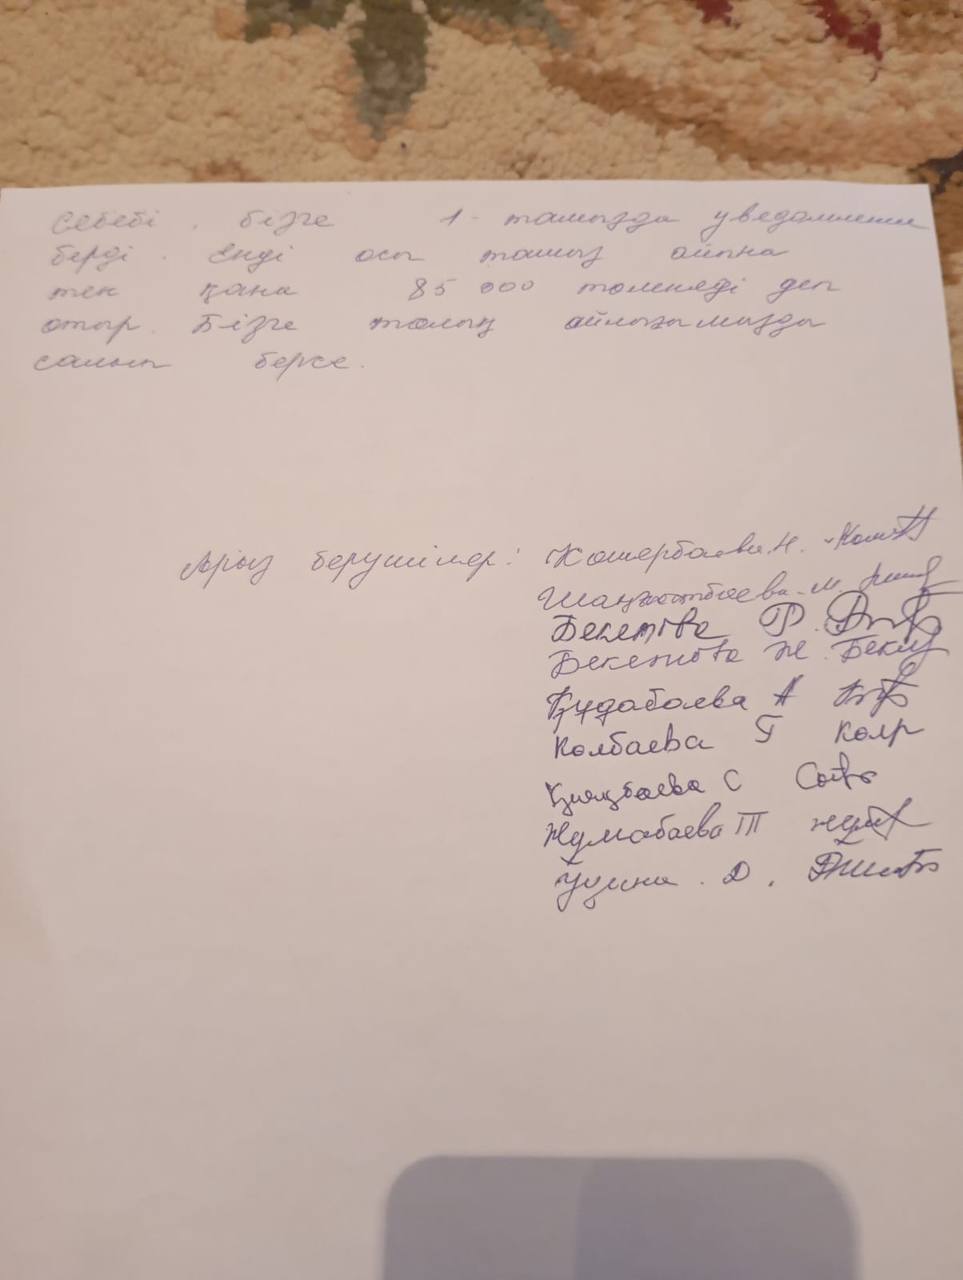 себебі, бізге 1-тамызда уведомление
берді. Енді осы тамыз айына
тек қана 85 000 төленеді деп
отыр. Бізге толық айлығымызды
салып берсе.
Арыз берушілер: Кошербаева Н.
Шаңжотбаева М
Бекетова Р.
Бекетова Ж. Бекет
Құдабаева А
Колбаева Г Колр
Қиязбаева С
Жумабаева Т
Д.